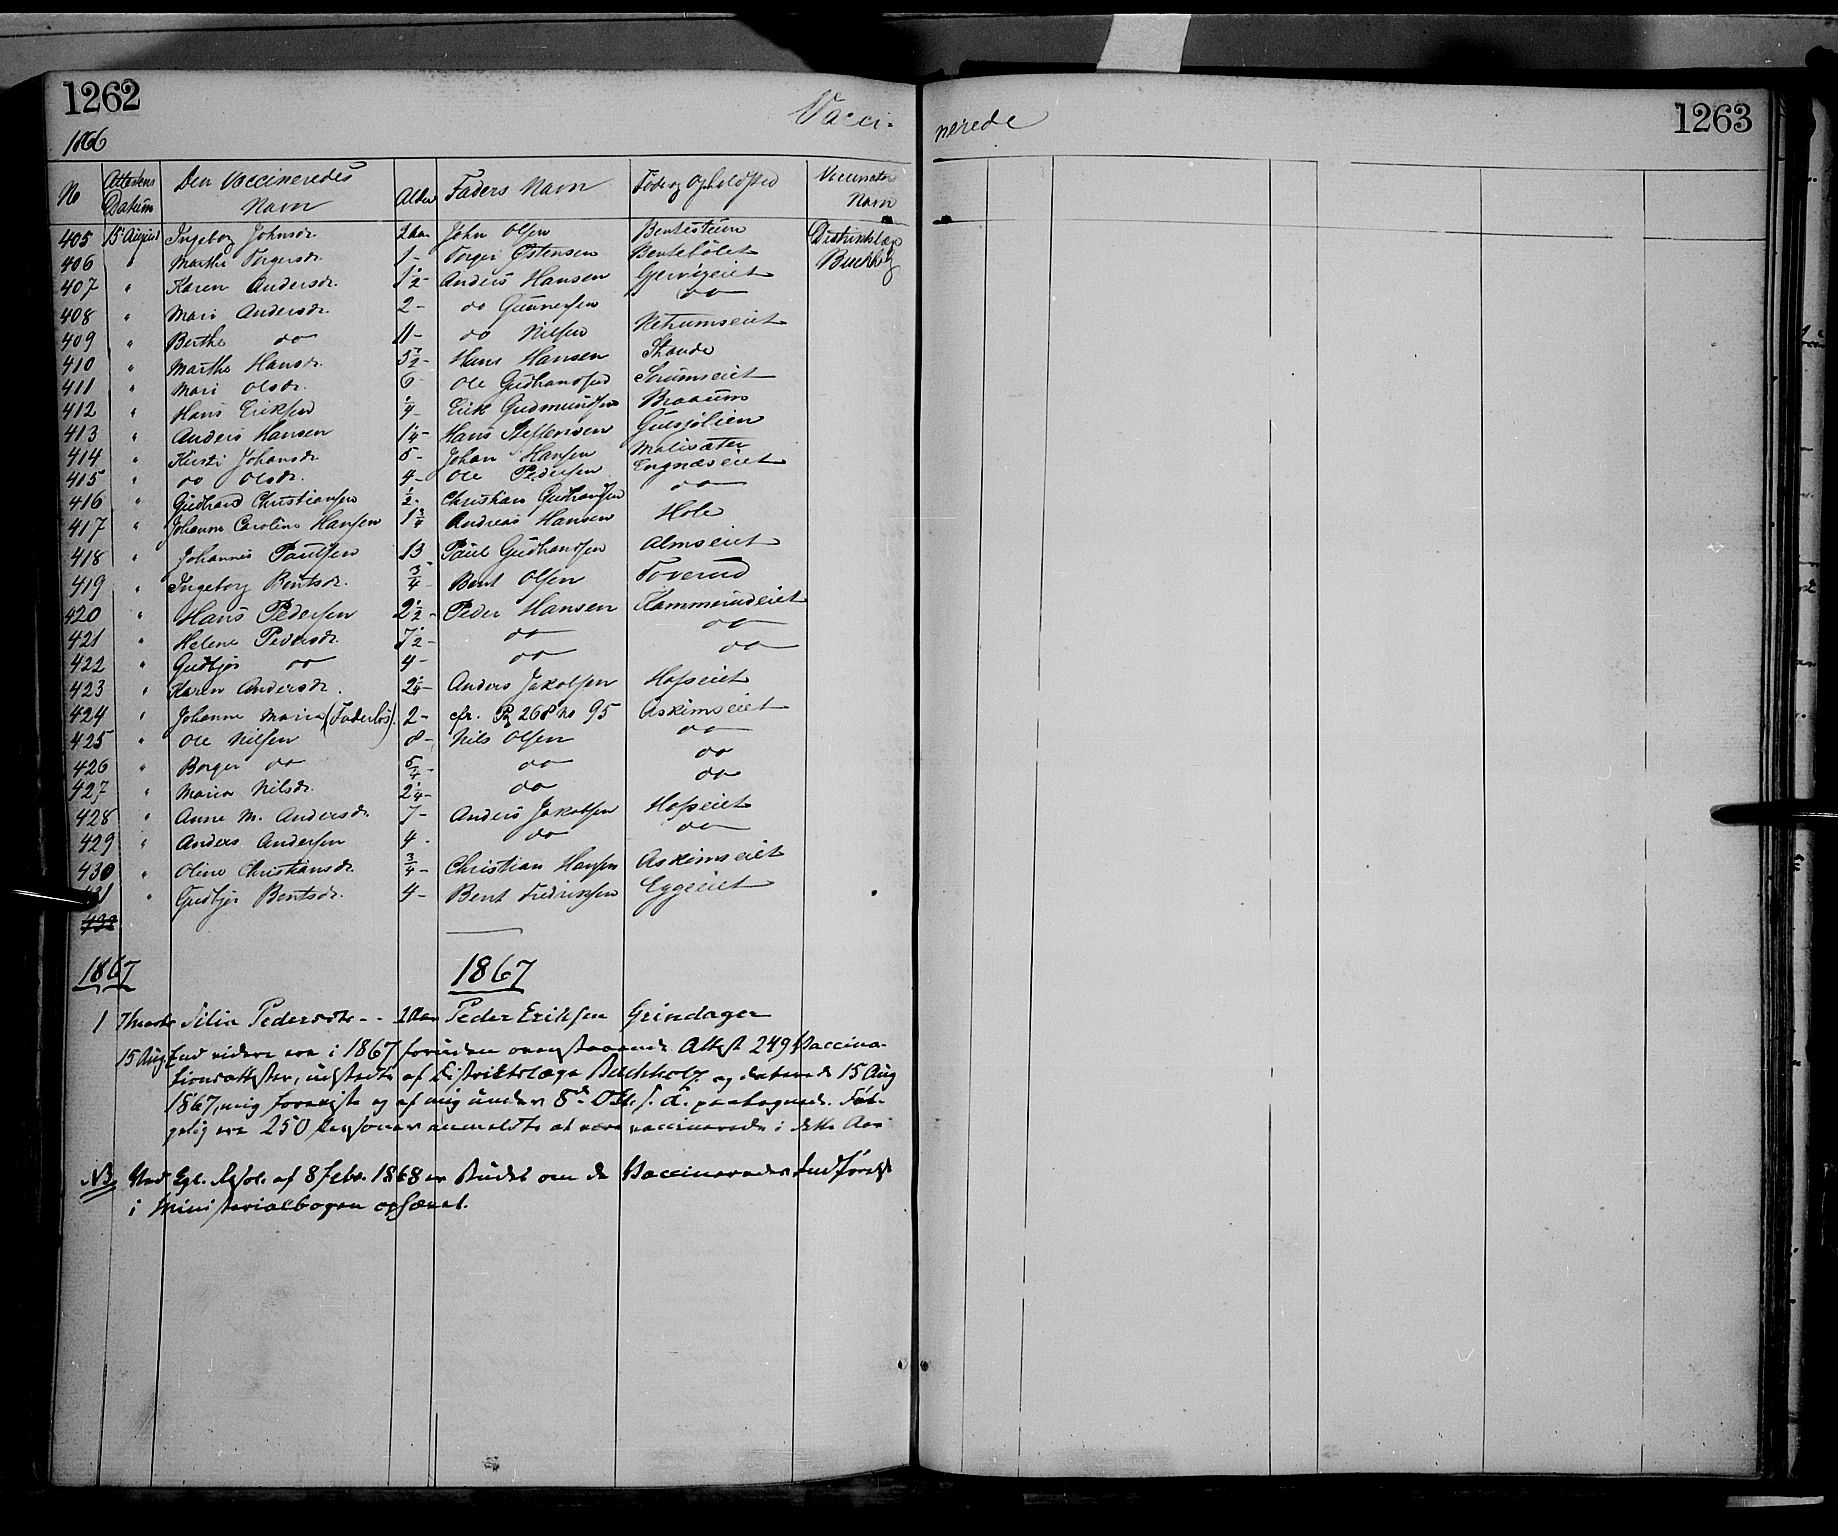 1262
1263
Vacci-
nerede
1866
No Attestens Datum Den Vaccineredes Navn Alder Faders Navn Føde og Opholdsted Vaccinators Navn
405 15 August Ingeborg Johnsdr. 2 Aar John Olsen Bentestuen Distriktslæge
406 " Marthe Torgersdr. 1 - Torger Østensen Bentebølet Buchholz
407 " Karen Andersdr. 1½ - Anders Hansen Gjervigeiet
408 " Mari Andersdr. 2 - do Gunnersen do
409 " Berthe do 11 - do Nilsen
410 " Marthe Hansdr. Hans Hansen
411 " Mari Olsdr. 6 - Ole Gudbrandsen Sorumseiet
412 " Hans Eriksen ¼ - Erik Gudmundsen Braaum
413 " Anders Hansen 1¼ - Hans Steffensen Gulsjølien
414 " Kirsti Johansdr. 5 - Johan Hansen Molisæter
415 " do Olsdr. 4 - Ole Pedersen Engnæseiet
416 " Gudbrand Christiansen ½ - Christian Gudbrandsen do
417 " Johanne Caroline Hansen 1¾ Andreas Hansen Hole
418 " Johannes Paulsen 13 Paul Gudbrandsen Almseiet
419 " Ingeborg Bentsdr. ¾ - Bent Olsen Toverud
420 " Hans Pedersen 2½ - Peder Hansen Kammerudeiet
421 " Helene Pedersdr. 7½ - do do
422 " Gudbjør do 4 - do do
423 " Karen Andersdr. 2¼ - Anders Jakobsen Hofseiet
424 " Johanne Maria (Faderløs). 2 - cfr. Pg 268 No 95 Askimseiet
425 " Ole Nilsen 8 - Nils Olsen do
426 " Borger do 5/4 - do do
427 " Maria Nilsdr. 2¼ - do do
428 " Anne M. Andersdr. 7 - Anders Jakobsen Hofseiet
429 " Anders Andersen 4 - do do
430 " Oline Christiansdr. ¾ - Christian Hansen Askimseiet
431 " Gudbjør Bentsdr. 4 - Bent Fredriksen Eggeeiet
432
1867 1867
1 7 Marts Silia Pedersdtr - - 2 Aar Peder Eriksen Grindager
15 Aug. End videre ere i 1867 foruden ovenstaaende Attest 249 Vaccina-
tionsattester, udstedte af Distriktslæge Buchholz og daterede 15 Aug
1867, mig foreviste og af mig under 8de Okt. s. A. paategnede. Føl-
gelig ere 250 Personer anmeldte at være vaccinerede i dette Aar
NB. Ved Kgl. Resol. af 8 Febr. 1868 er Budet om de Vaccineredes Indførelse
i Ministerialbogen ophævet.